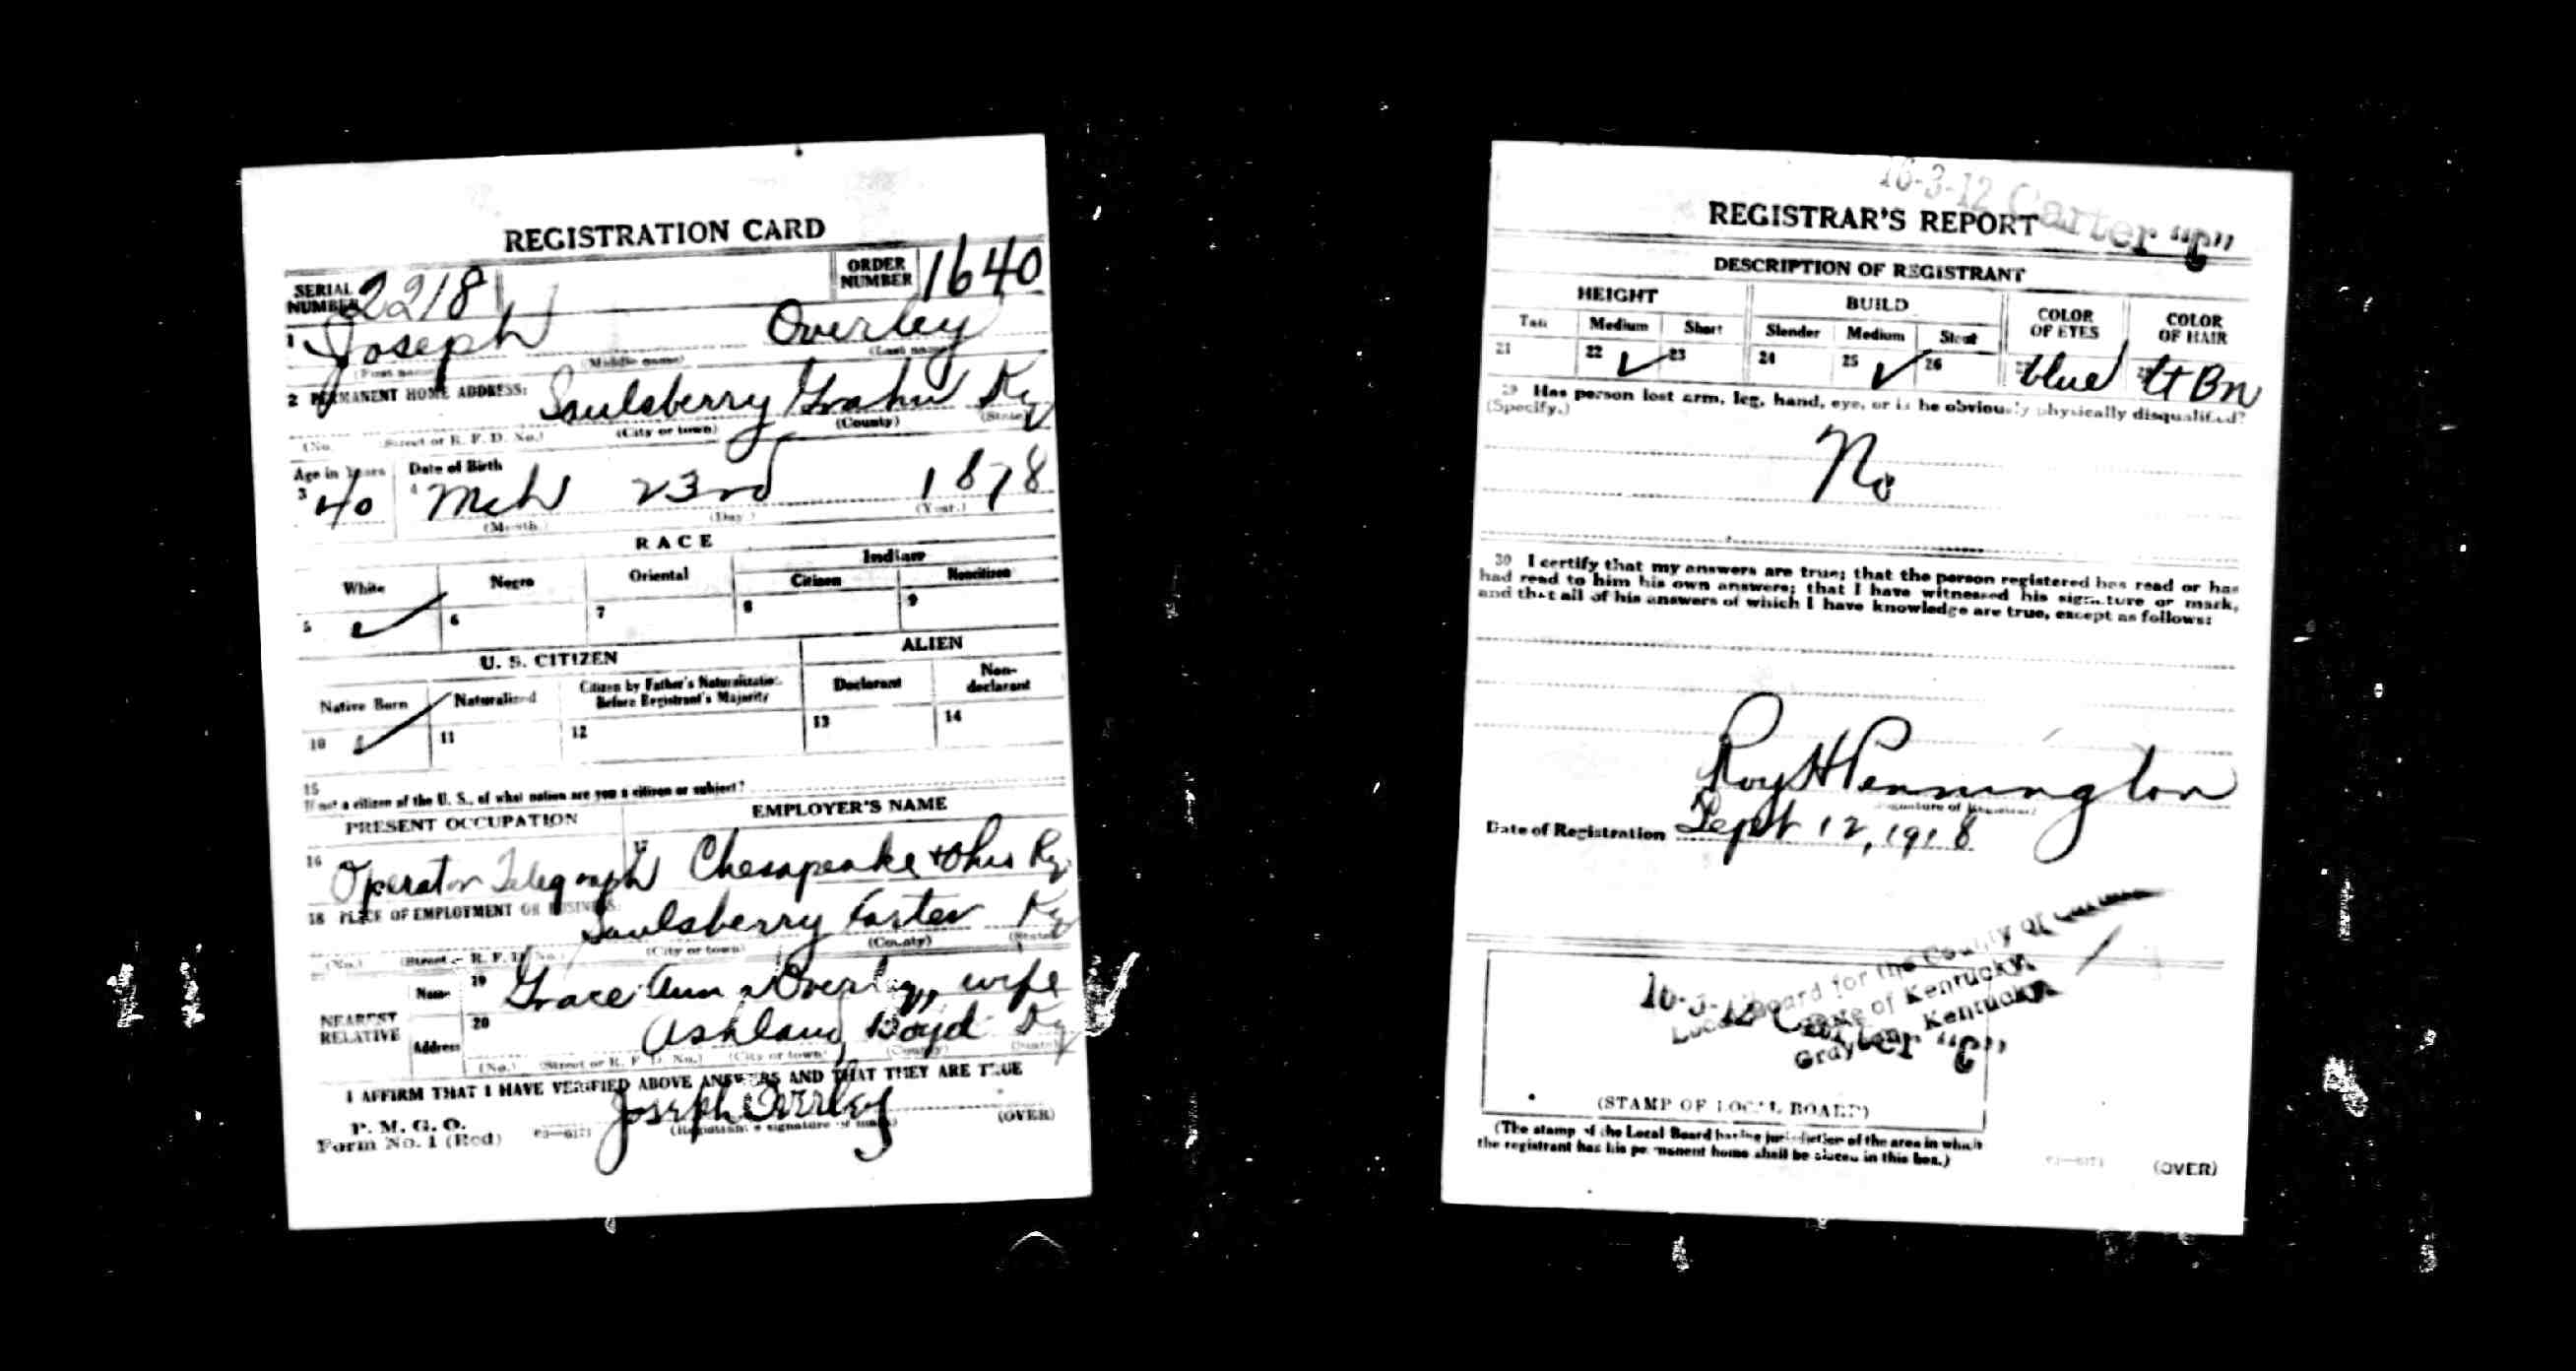 REGISTRATION CARD
SERIAL NUMBER 2218 ORDER NUMBER 1640
1 Joseph Overley
(First name) (Middle name) (Last name)
2 PERMANENT HOME ADDRESS: Saulsberry Grahn Ky
(No.) (Street or R. F. D. No.) (City or town) (County) (State)
Age in Years Date of Birth
3 40 4 Mch 23rd 1878
(Month.) (Day.) (Year.)
RACE
White Negro Oriental Indian
Citizen Noncitizen
5 ✓ 6 7 8 9
U. S. CITIZEN ALIEN
Native Born Naturalized Citizen by Father's Naturalization Before Registrant's Majority Declarant Non-declarant
10 ✓ 11 12 13 14
15
If not a citizen of the U. S., of what nation are you a citizen or subject?
PRESENT OCCUPATION EMPLOYER'S NAME
16 Operator Telegraph 17 Chesapeake + Ohio Ry
18 PLACE OF EMPLOYMENT OR BUSINESS:
Saulsberry Carter Ky
(No.) (Street or R. F. D. No.) (City or town) (County) (State)
NEAREST RELATIVE
Name 19 Grace Ann Overley, wife
Address 20 Ashland Boyd Ky
(No.) (Street or R. F. D. No.) (City or town) (County) (State)
I AFFIRM THAT I HAVE VERIFIED ABOVE ANSWERS AND THAT THEY ARE TRUE
P. M. G. O.
Form No. 1 (Red) Joseph Overley
(Registrant's signature or mark) (OVER)
16-3-12 Carter "C"
REGISTRAR'S REPORT
DESCRIPTION OF REGISTRANT
HEIGHT BUILD COLOR OF EYES COLOR OF HAIR
Tall Medium Short Slender Medium Stout
21 22 ✓ 23 24 25 ✓ 26 blue Lt Bn
29 Has person lost arm, leg, hand, eye, or is he obviously physically disqualified?
(Specify.)
No
30 I certify that my answers are true; that the person registered has read or has
had read to him his own answers; that I have witnessed his signature or mark,
and that all of his answers of which I have knowledge are true, except as follows:
Roy H Pennington
(Signature of Registrar)
Date of Registration Sept 12, 1918
Local Board for the County of
State of Kentucky,
Grayson, Kentucky
16-3-12 Carter "C"
(STAMP OF LOCAL BOARD)
(The stamp of the Local Board having jurisdiction of the area in which
the registrant has his permanent home shall be placed in this box.)
(OVER)